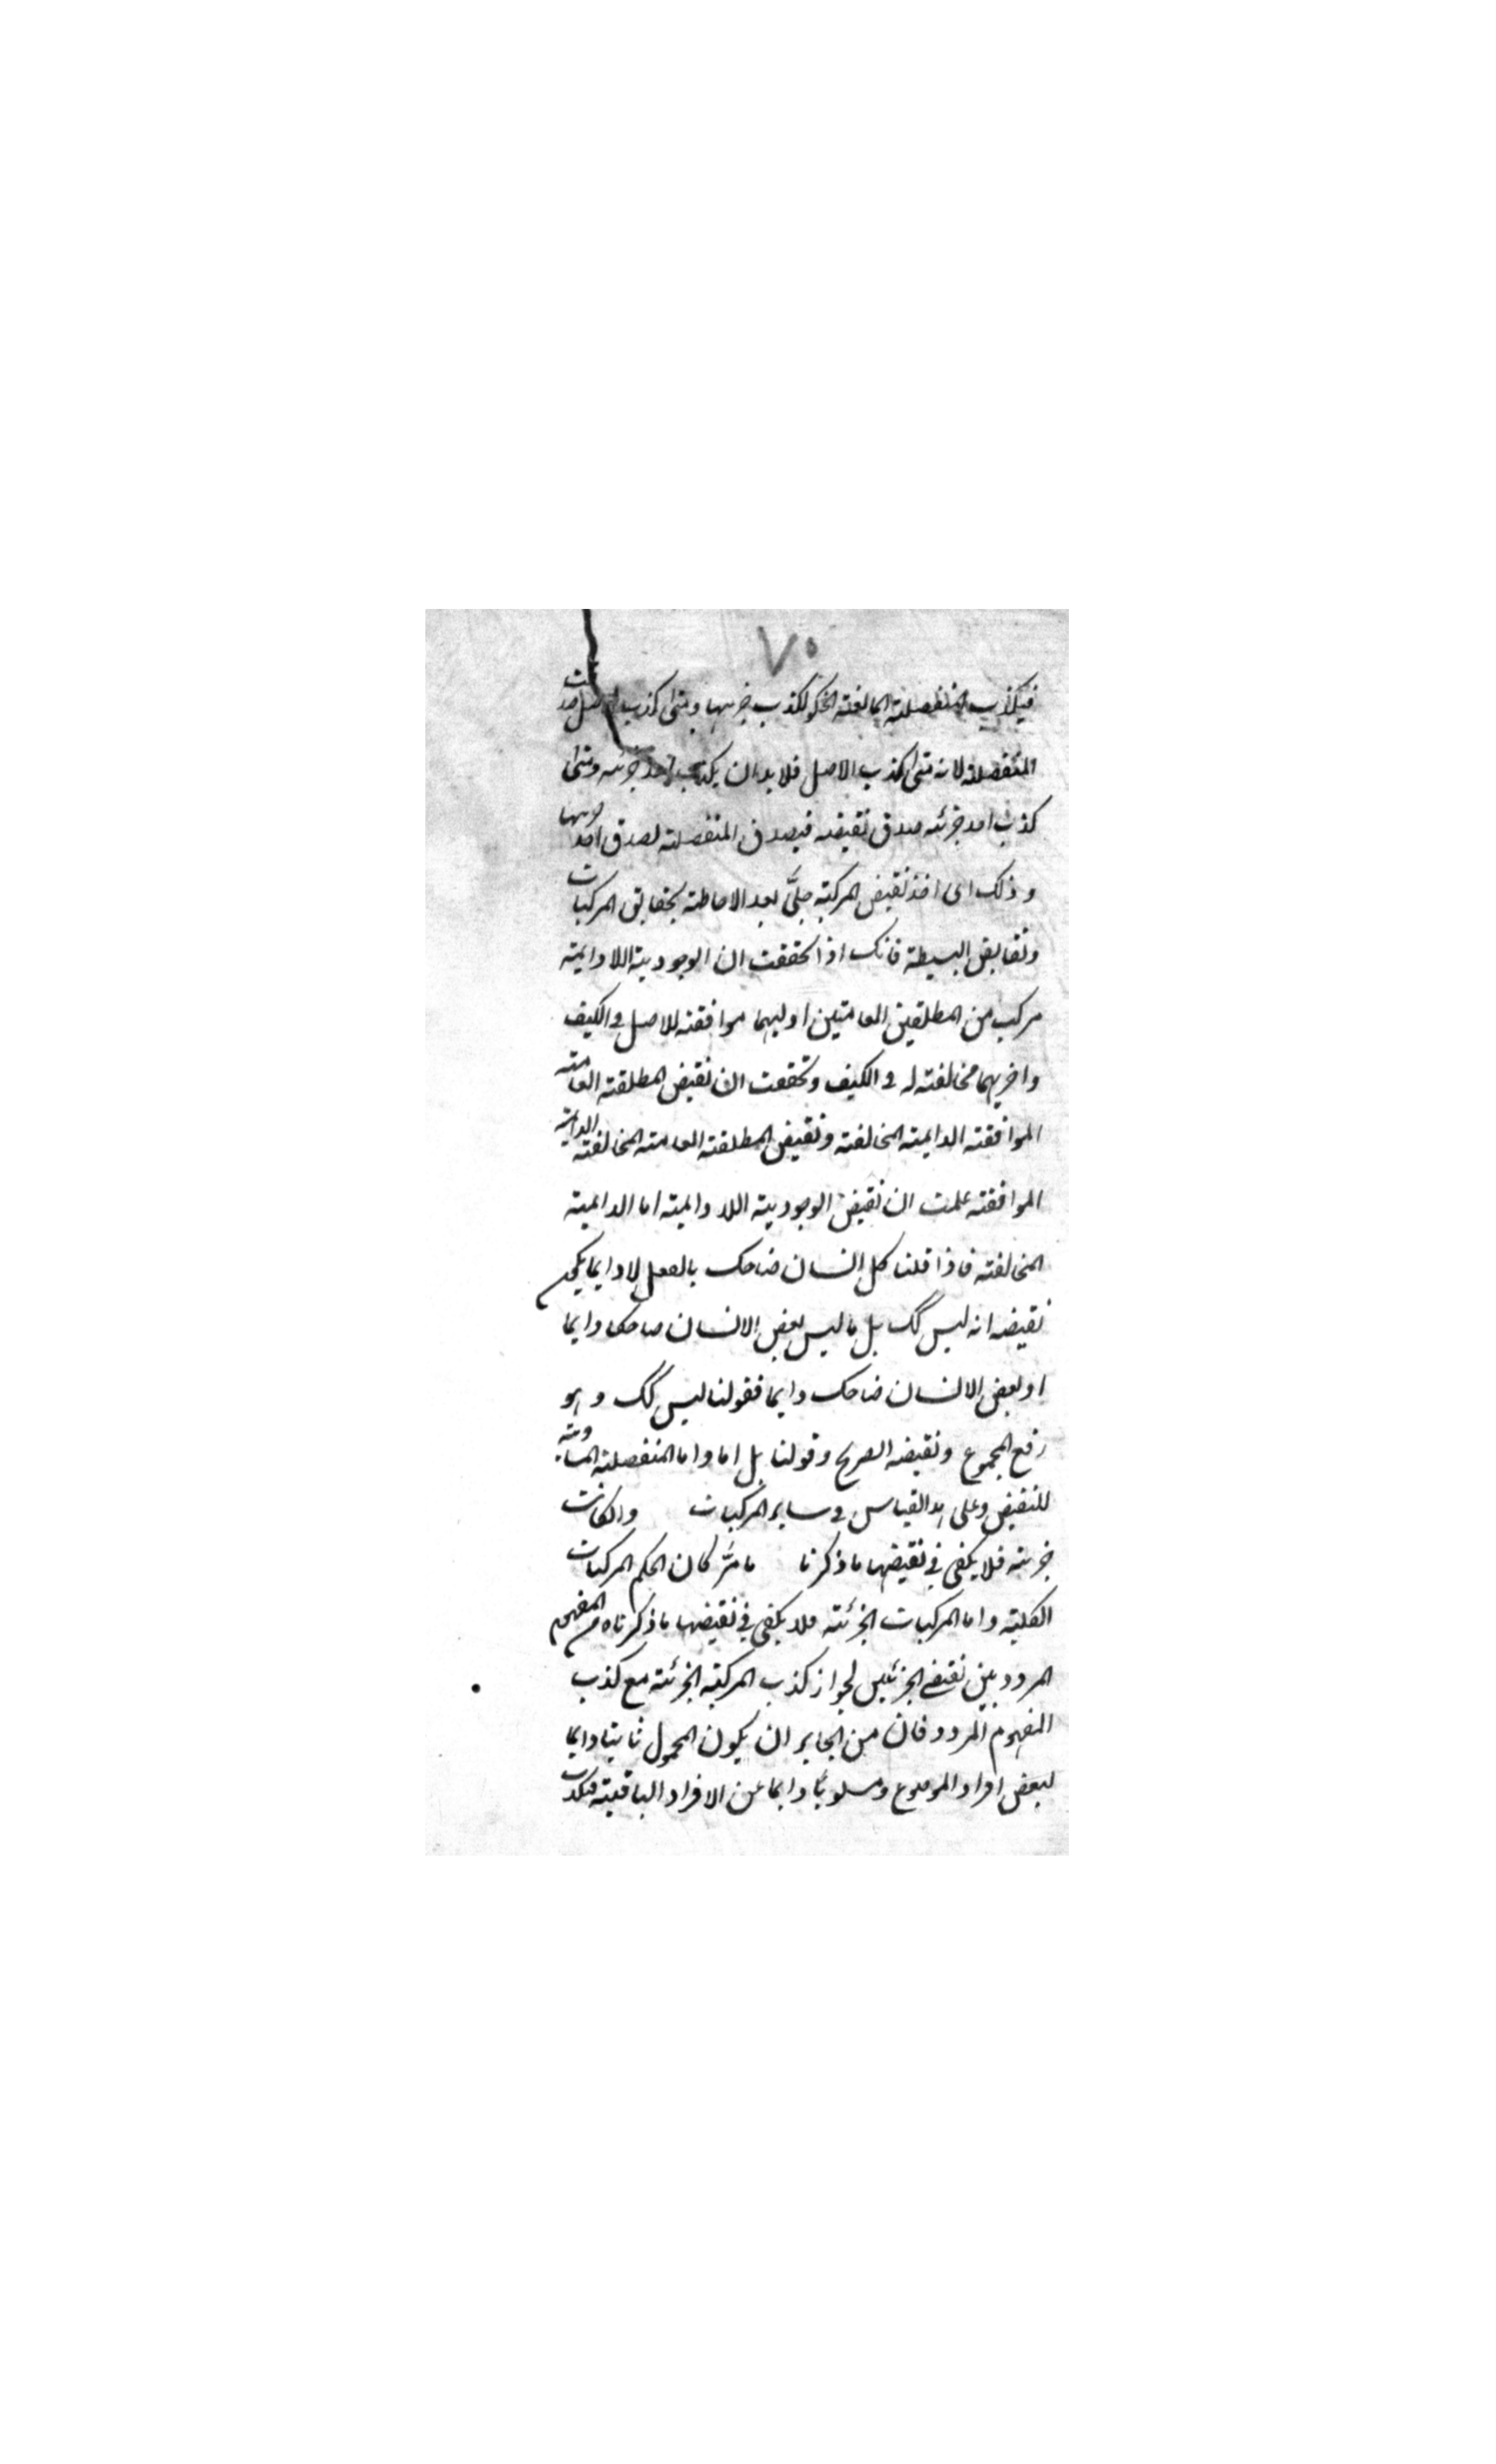 ٧٥
فيكذب المنفصلة المانعة الخلو لكذب جزئيها ومتى كذب الاصل صدقت
المنفصلة لانه متى كذب الاصل فلا بد ان يكذب احد جزئيه ومتى
كذب احد جزئيه صدق نقيضه فيصدق المنفصلة لصدق احد جزئيها
وذلك اى اخذ نقيض المركبة جلىّ بعد الاحاطة بحقايق المركبات
ونقايض البسيطة فانك اذا تحققت ان الوجودية اللادايمة
مركب من المطلقتين العامتين اوليهما موافقة للاصل فى الكيف
واخريهما مخالفة له فى الكيف وتحققت ان نقيض المطلقة العامة
الموافقة الدايمة المخالفة ونقيض المطلقة العامة المخالفة الدايمة
الموافقة علمت ان نقيض الوجودية اللادايمة اما الدايمة
المخالفة فاذا قلنا كل انسان ضاحك بالفعل لا دايما يكون
نقيضه انه ليس كك بل اما ليس بعض الانسان ضاحكا دايما
او بعض الانسان ضاحك دايما فقولنا ليس كك وهو
رفع المجموع ونقيضه الصريح وقولنا بل اما واما المنفصلة المساوية
للنقيض وعلى هذا القياس فى ساير المركبات وان كانت
جزئية فلا يكفى فى نقيضها ما ذكرنا ما مرّ كان الحكم المركبات
الكلية واما المركبات الجزئية فلا يكفى فى نقيضها ما ذكرناه من المفهوم
المردد بين نقيضى الجزئين لجواز كذب المركبة الجزئية مع كذب
المفهوم المردد فان من الجايز ان يكون المحمول ثابتا دايما
لبعض افراد الموضوع ومسلوبًا دايما عن الافراد الباقية فيكذب